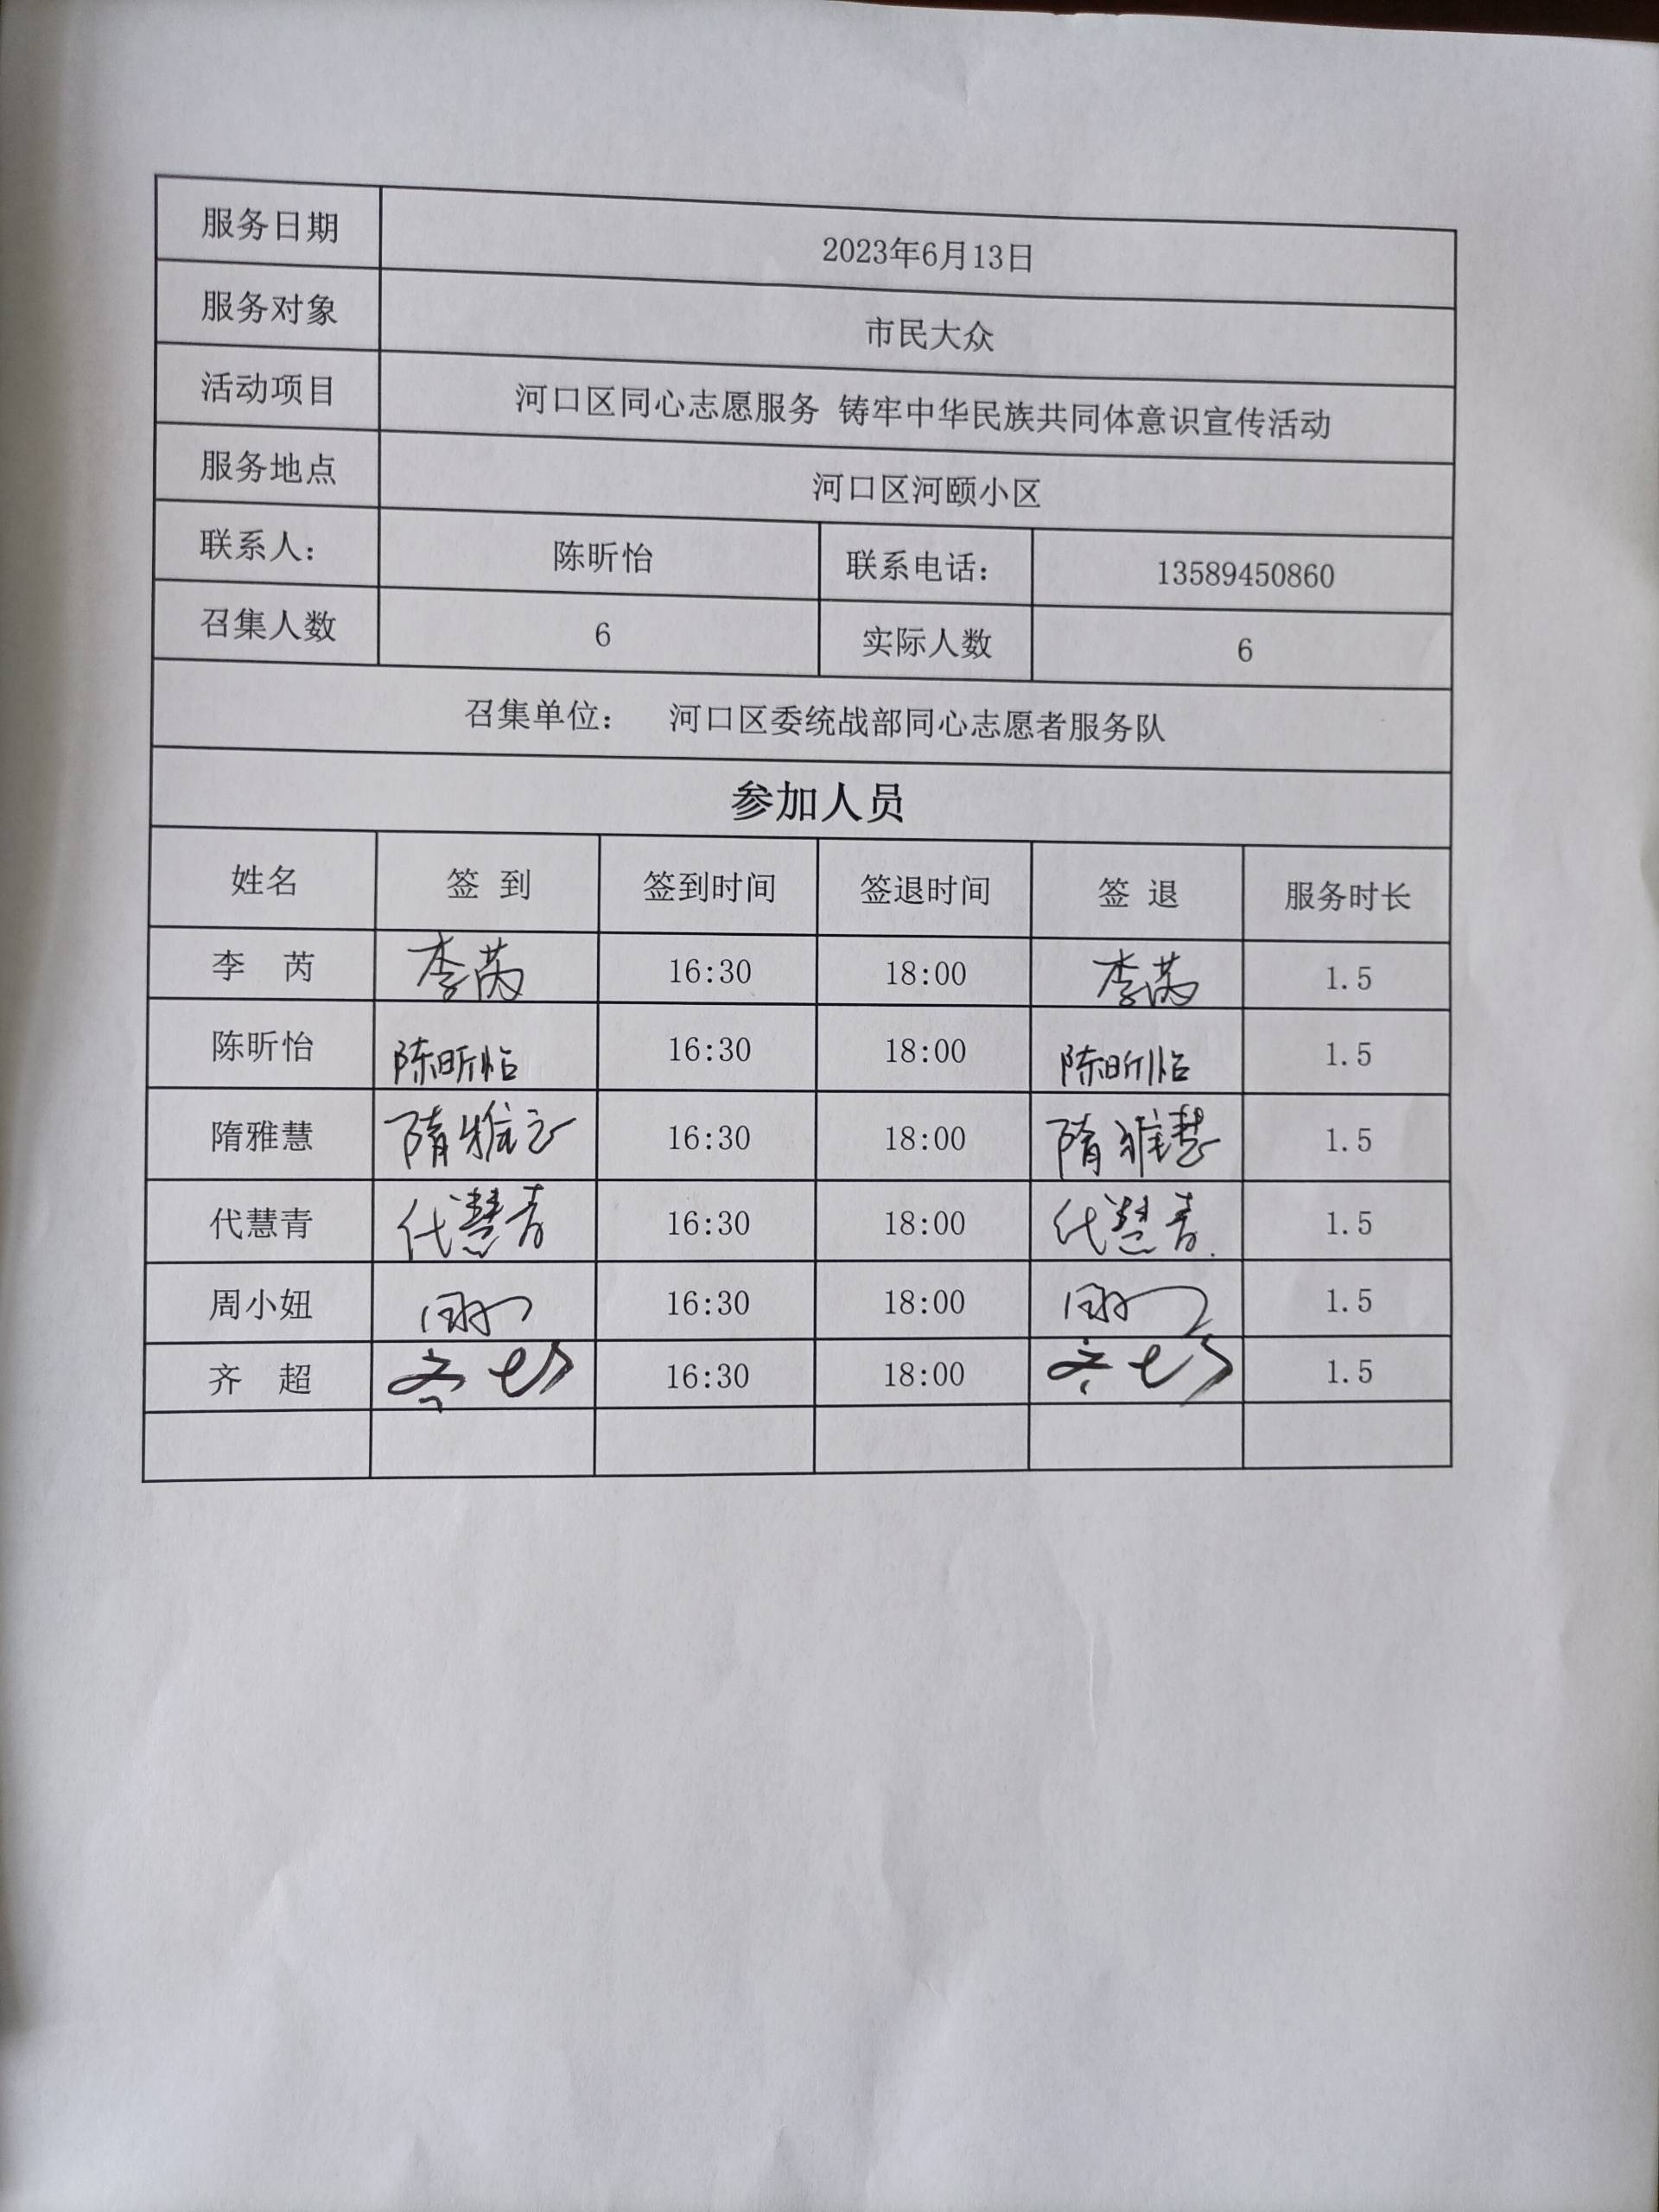 服务日期 2023年6月13日
服务对象 市民大众
活动项目 河口区同心志愿服务 铸牢中华民族共同体意识宣传活动
服务地点 河口区河颐小区
联系人： 陈昕怡 联系电话： 13589450860
召集人数 6 实际人数 6
召集单位： 河口区委统战部同心志愿者服务队
参加人员
姓名 签 到 签到时间 签退时间 签 退 服务时长
李 芮 李芮 16:30 18:00 李芮 1.5
陈昕怡 陈昕怡 16:30 18:00 陈昕怡 1.5
隋雅慧 隋雅慧 16:30 18:00 隋雅慧 1.5
代慧青 代慧青 16:30 18:00 代慧青 1.5
周小妞 16:30 18:00 1.5
齐 超 齐超 16:30 18:00 齐超 1.5